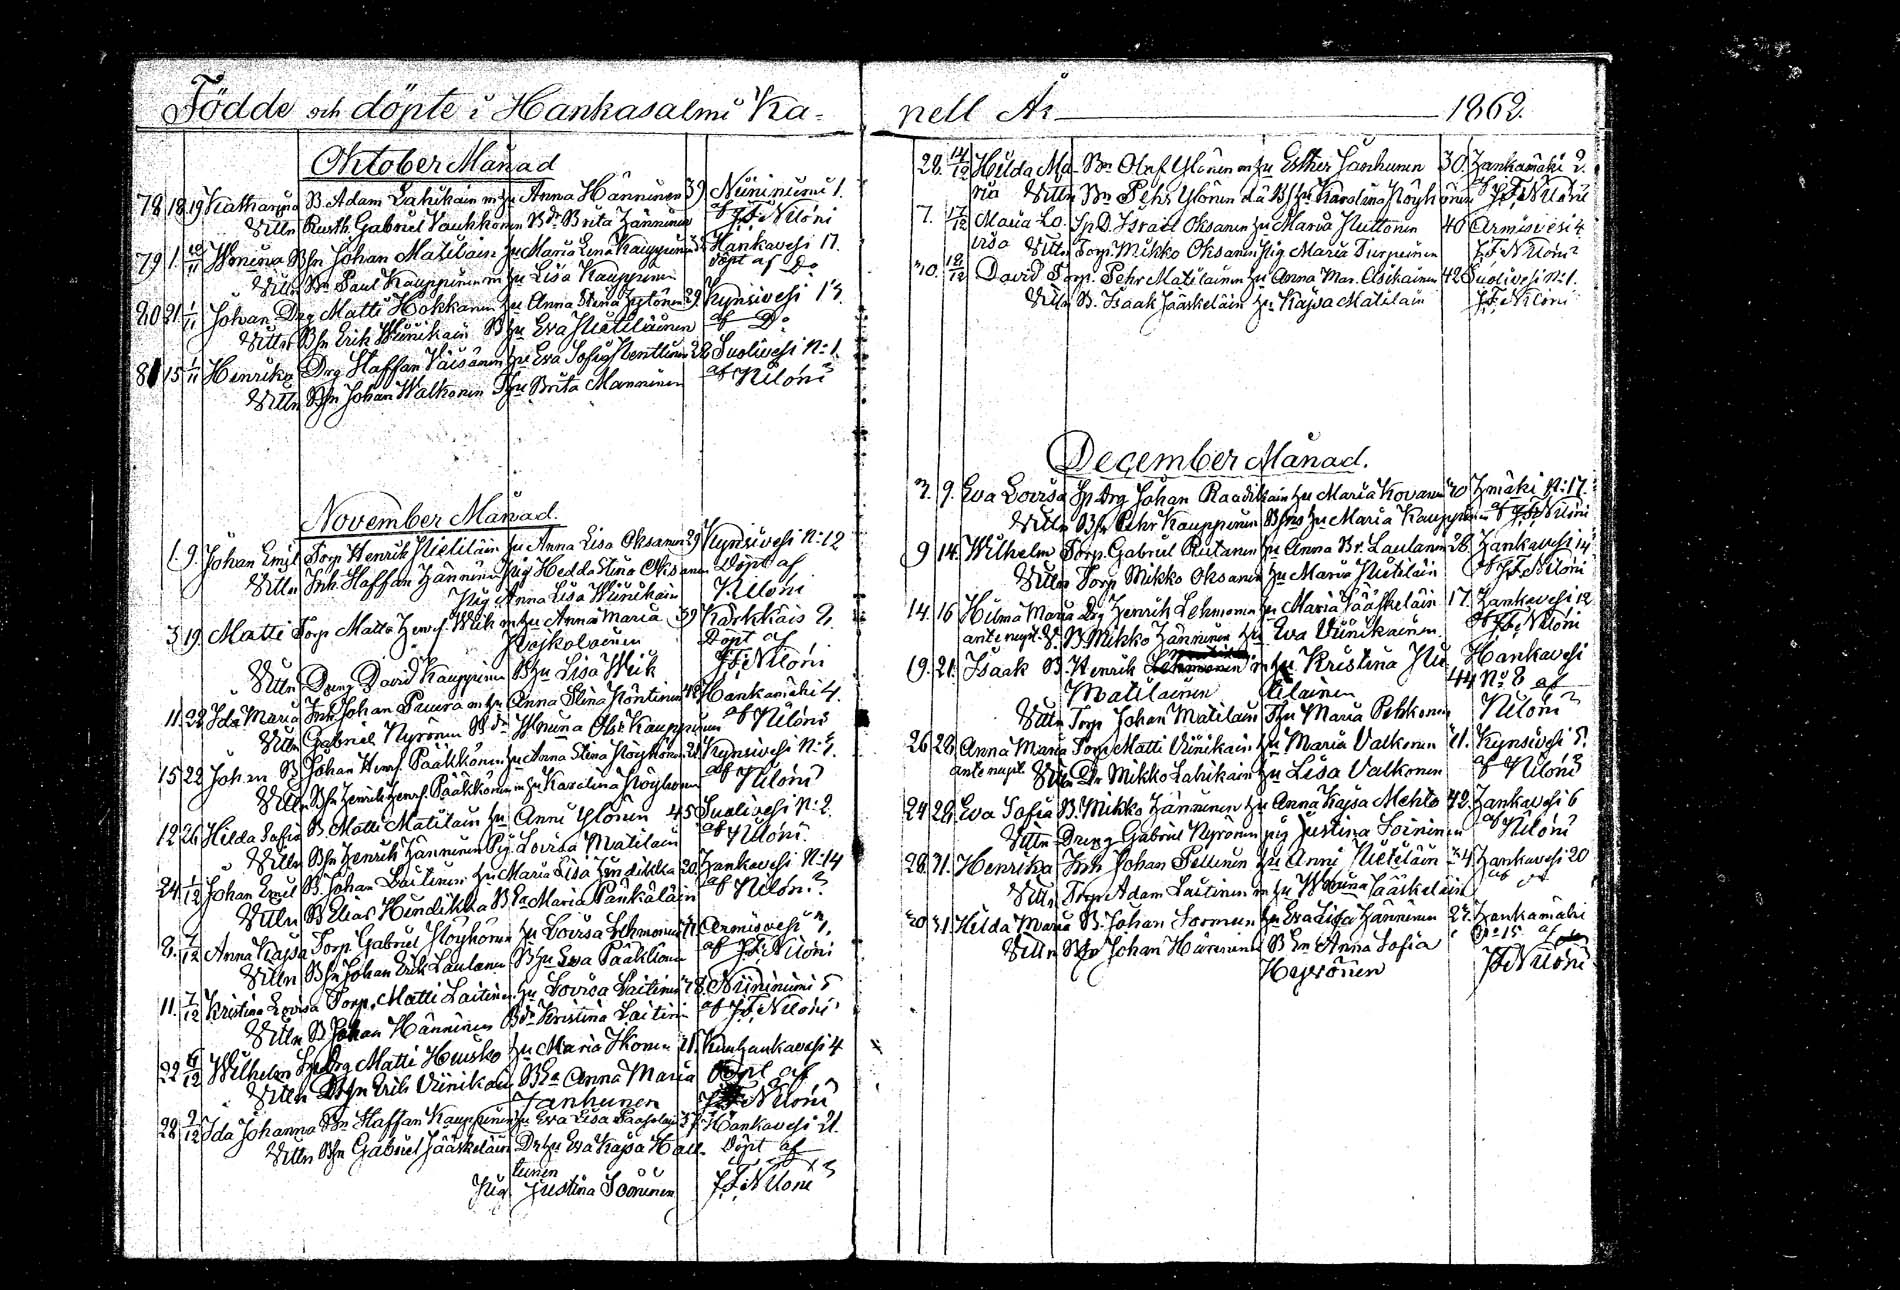 Födde och döpte i Hankasalmi Ka-
Oktober Månad
78 18 19 Katharina B. Adam Lahikain m hu Anna Hänninen 39 Niinimini 1.
Vittn Rusth Gabriel Paukkonen Bdr Brita Hänninen af J.F. Niloni
79 1. 10/11 Wenina Bsn Johan Matilain hu Maria Lena Kauppinen Hankavesi 17.
Vittn Bn Paul Kauppinen m hu Lisa Kauppinen döpt af Do
80 31 1/11 Johan Drg Matti Hokkanen hu Anna Stina Hytönen 29. Kynsivesi 13.
Vittn Bsn Erik Wiinikain B hu Eva Nietiläinen af Do
81 15 1/11 Henrika Drg Staffan Väisänen hu Eva Sofia Penttinen 28 Suolivesi No 1.
Vittn Bsn Johan Walkonen Thu Brita Manninen af Niloni
November Månad.
1. 9. Johan Emil Torp Henrik Nietiläin hu Anna Lisa Oksanen 39 Kynsivesi No: 12
Vittn Inh. Staffan Hänninen Pig Hedda Stina Oksanen Döpt af
Pig Anna Lisa Wiinikain Niloni
3 19. Matti Torp Matts Henrs. Wiik m hu Anna Maria 39 Kärkkäis 2.
Pojkolainen Döpt af
Vittn Dreng David Kauppinen B hu Lisa Wiik J.F. Niloni
11. 22 Ida Maria Inh Johan Puura m hu Anna Stina Pöntinen 42 Hankamäki 4.
Vittn Gabriel Nyrönen Bdr Wenina Olsd. Kauppinen af Niloni
15 22 Johan B Johan Henrs. Pääkkönen hu Anna Stina Pöyhönen 21. Kynsivesi No: 5.
Vittn Bsn Henrik Henrs. Pääkkönen m hu Karolina Pöyhönen af Niloni
12 26 Hilda Sofia B. Matti Matilain hu Anni Ylönen 45 Suolivesi No: 2.
Vittn Bsn Henrik Hänninen Pig Lovisa Matilain af Niloni
24 1/12 Johan Emil B Johan Laitinen hu Maria Lisa Hendikka 20. Hankavesi No: 14
Vittn B Elias Hendikka B Ea Maria Pänkäläin af Niloni
8. 7/12 Anna Kajsa Torp. Gabriel Pöyhönen hu Lovisa Lehmonen Armisvesi
Vittn Bsn Johan Erik Laulanen B hu Eva Pääkkönen af J.F. Niloni
11. 7/12 Kristina Lovisa Torp. Matti Laitinen hu Lovisa Laitinen 28. Niinimini 5
Vittn B Johan Hänninen Bdr Kristina Laitinen af J.F. Niloni
22 6/12 Wilhelm Sp Drg Matti Heusko hu Maria Ikonen Kuuhankavesi 4
Vittn Bsn Erik Viinikain B Ea Anna Maria Döpt af
Janhunen J.F. Niloni
28 9/12 Ida Johanna Bn Staffan Kauppinen hu Eva Lisa Paasolain 37 Hankavesi 21.
Vittn Bsn Gabriel Jääskeläin Dr hu Eva Kajsa Hall- Döpt af
tunen
Pig Justina Soininen J.F. Niloni
pell År 1862.
28. 14/12 Hilda Ma- Bn Olof Ylönen m hu Esther Janhunen 30. Hankamäki 2.
ria Vittn Bn Pehr Ylönen B hu Karolina Pöyhönen af J.F. Niloni
7. 17/12 Maria Lo- Sp D. Israel Oksanen hu Maria Nuttonen 40 Armisvesi 4
visa Vittn Torp. Mikko Oksanen Pig Maria Turpeinen J.F. Niloni
30. 18/12 David Torp. Pehr Matilainen hu Anna Mar. Asikainen 42 Suolivesi No: 1.
Vittn B. Isaak Jääskeläin hu Kajsa Matilain J.F. Niloni
December Månad.
3. 9. Eva Lovisa Sp Drg Johan Raadikain hu Maria Kovanen 30 Hmäki No: 17.
Vittn Bsn Pehr Kauppinen Bsns hu Maria Kauppinen af J.F. Niloni
9 14. Wilhelm Torp. Gabriel Rutanen hu Anna Br. Laulanen 28. Hankavesi 14
Vittn Torp Mikko Oksanen hu Maria Nietiläin af J.F. Niloni
14. 16 Hilma Maria Drg Henrik Lehmonen hu Maria Jääskeläin 17. Hankavesi 12
ante nupt. V. B Mikko Hänninen hu Eva Viinikainen af J.F. Niloni
19. 21. Isaak B. Henrik m hu Kristina Nie- Hankavesi
Matilainen tilainen 44 No 8 af
Vittn Torp Johan Matilain Thu Maria Pekkonen Niloni
26 28. Anna Maria Torp Matti Viinikain hu Maria Valkonen 21. Kynsivesi 5.
ante nupt. Vittn Dr Mikko Lahikain hu Lisa Valkonen af Niloni
24 28. Eva Sofia B. Mikko Hänninen hu Anna Kajsa Mehto 42. Hankavesi 6
Vittn Dreng Gabriel Nyrönen pig Justina Soininen af Niloni
28. 31. Henrika Inh Johan Pellinen hu Anni Nietiläin 34 Hankavesi 20
Vittn Torp Adam Laitinen m hu Wenina Jääskeläin
30 31. Hilda Maria B. Johan Sormun hu Eva Lisa Hänninen 27. Hankamäki
Vittn Bsn Johan Härmein B En Anna Sofia No 15 af
Heyrönen J.F. Niloni